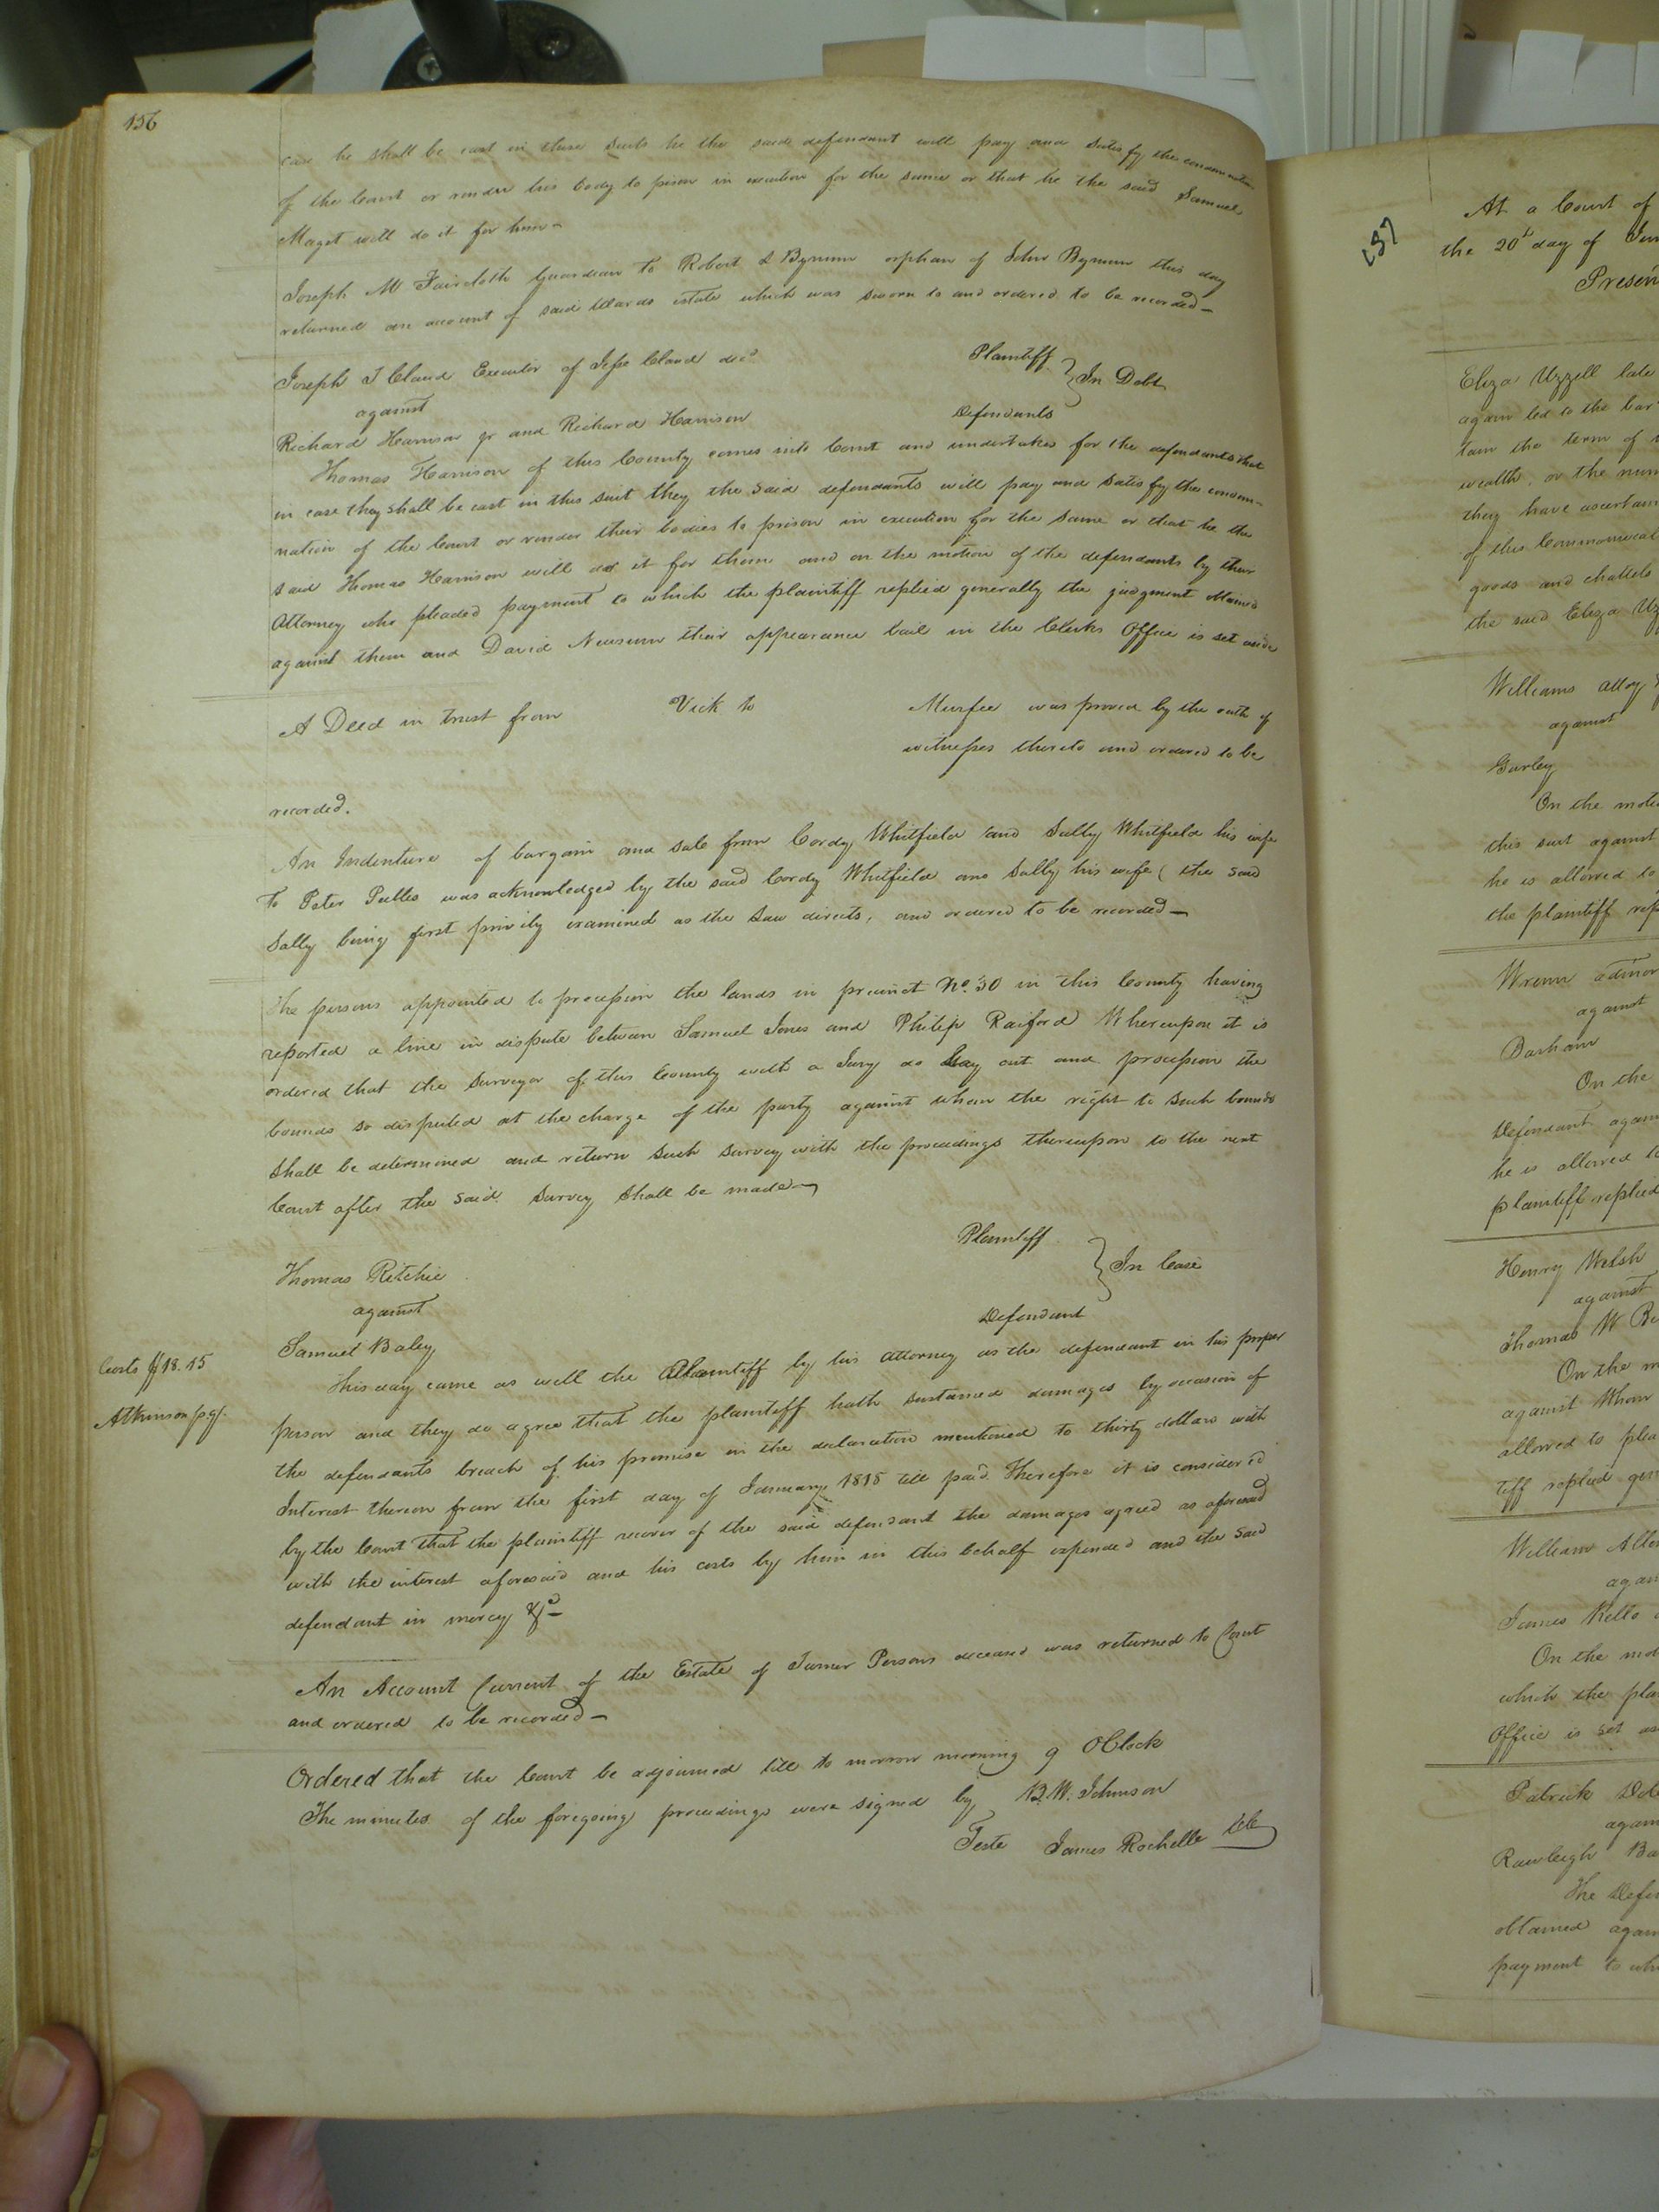 156
case he shall be cast in these suits he the said defendant will pay and satisfy the condemnation
of the Court or render his body to prison in execution for the same or that he the said Samuel
Maget will do it for him -
Joseph M Faircloth Guardian to Robert S Bynum orphan of John Bynum this day
returned an account of said Wards estate which was sworn to and ordered to be recorded -
Joseph T Claud Executor of Jesse Claud decd Plaintiff
against } In Debt
Richard Harrison jr and Richard Harrison Defendants
Thomas Harrison of this County comes into Court and undertakes for the defendants that
in case they shall be cast in this suit they the said defendants will pay and satisfy the condem-
nation of the Court or render their bodies to prison in execution for the same or that he the
said Thomas Harrison will do it for them and on the motion of the defendants by their
Attorney who pleaded payment to which the plaintiff replied generally the judgment obtained
against them and David Newsum their appearance bail in the Clerks Office is set aside
A Deed in trust from Vick to Murfee was proved by the oath of
witnesses thereto and ordered to be
recorded.
An Indenture of bargain and sale from Cordy Whitfield and Sally Whitfield his wife
to Peter Peebles was acknowledged by the said Cordy Whitfield and Sally his wife (the said
Sally being first privily examined as the Law directs, and ordered to be recorded -
The persons appointed to procession the lands in precinct No. 30 in this County having
reported a line in dispute between Samuel Jones and Philip Raiford Whereupon it is
ordered that the Surveyor of this County with a Jury do Lay out and procession the
bounds so disputed at the charge of the party against whom the right to such bounds
shall be determined and return such survey with the proceedings thereupon to the next
Court after the said Survey shall be made -
Thomas Ritchie Plaintiff
against } In Case
Samuel Baley Defendant
Costs $18.15
Atkinson p.q.
This day came as well the Plaintiff by his attorney as the defendant in his proper
person and they do agree that the plaintiff hath sustained damages by occasion of
the defendants breach of his promise in the declaration mentioned to thirty dollars with
Interest thereon from the first day of January 1815 till paid. Therefore it is considered
by the Court that the plaintiff recover of the said defendant the damages agreed as aforesaid
with the interest aforesaid and his costs by him in this behalf expended and the said
defendant in mercy &c -
An Account Current of the Estate of Turner Persons deceased was returned to Court
and ordered to be recorded -
Ordered that the Court be adjourned till to morrow morning 9 OClock
The minutes of the foregoing proceedings were signed by B.W. Johnson
Teste James Rochelle Clk
137
At a Court of
the 20th day of Jun
Presen
Eliza Uzzell late
again led to the bar
tain the term of
wealth, or the num
they have ascertain
of this Commonweal
goods and chattels
the said Eliza Uz
Williams assy
against
Gurley
On the moti
this suit against
he is allowed to
the plaintiff rep
Wrenn admor
against
Barham
On the
Defendant again
he is allowed to
plaintiff replied
Henry Welsh
against
Thomas W Be
On the m
against Whom
allowed to plea
tiff replied gen
William Alle
again
James Kello
On the mot
which the pla
Office is set as
Patrick Dol
again
Rawleigh Ba
The Defen
obtained again
payment to wh